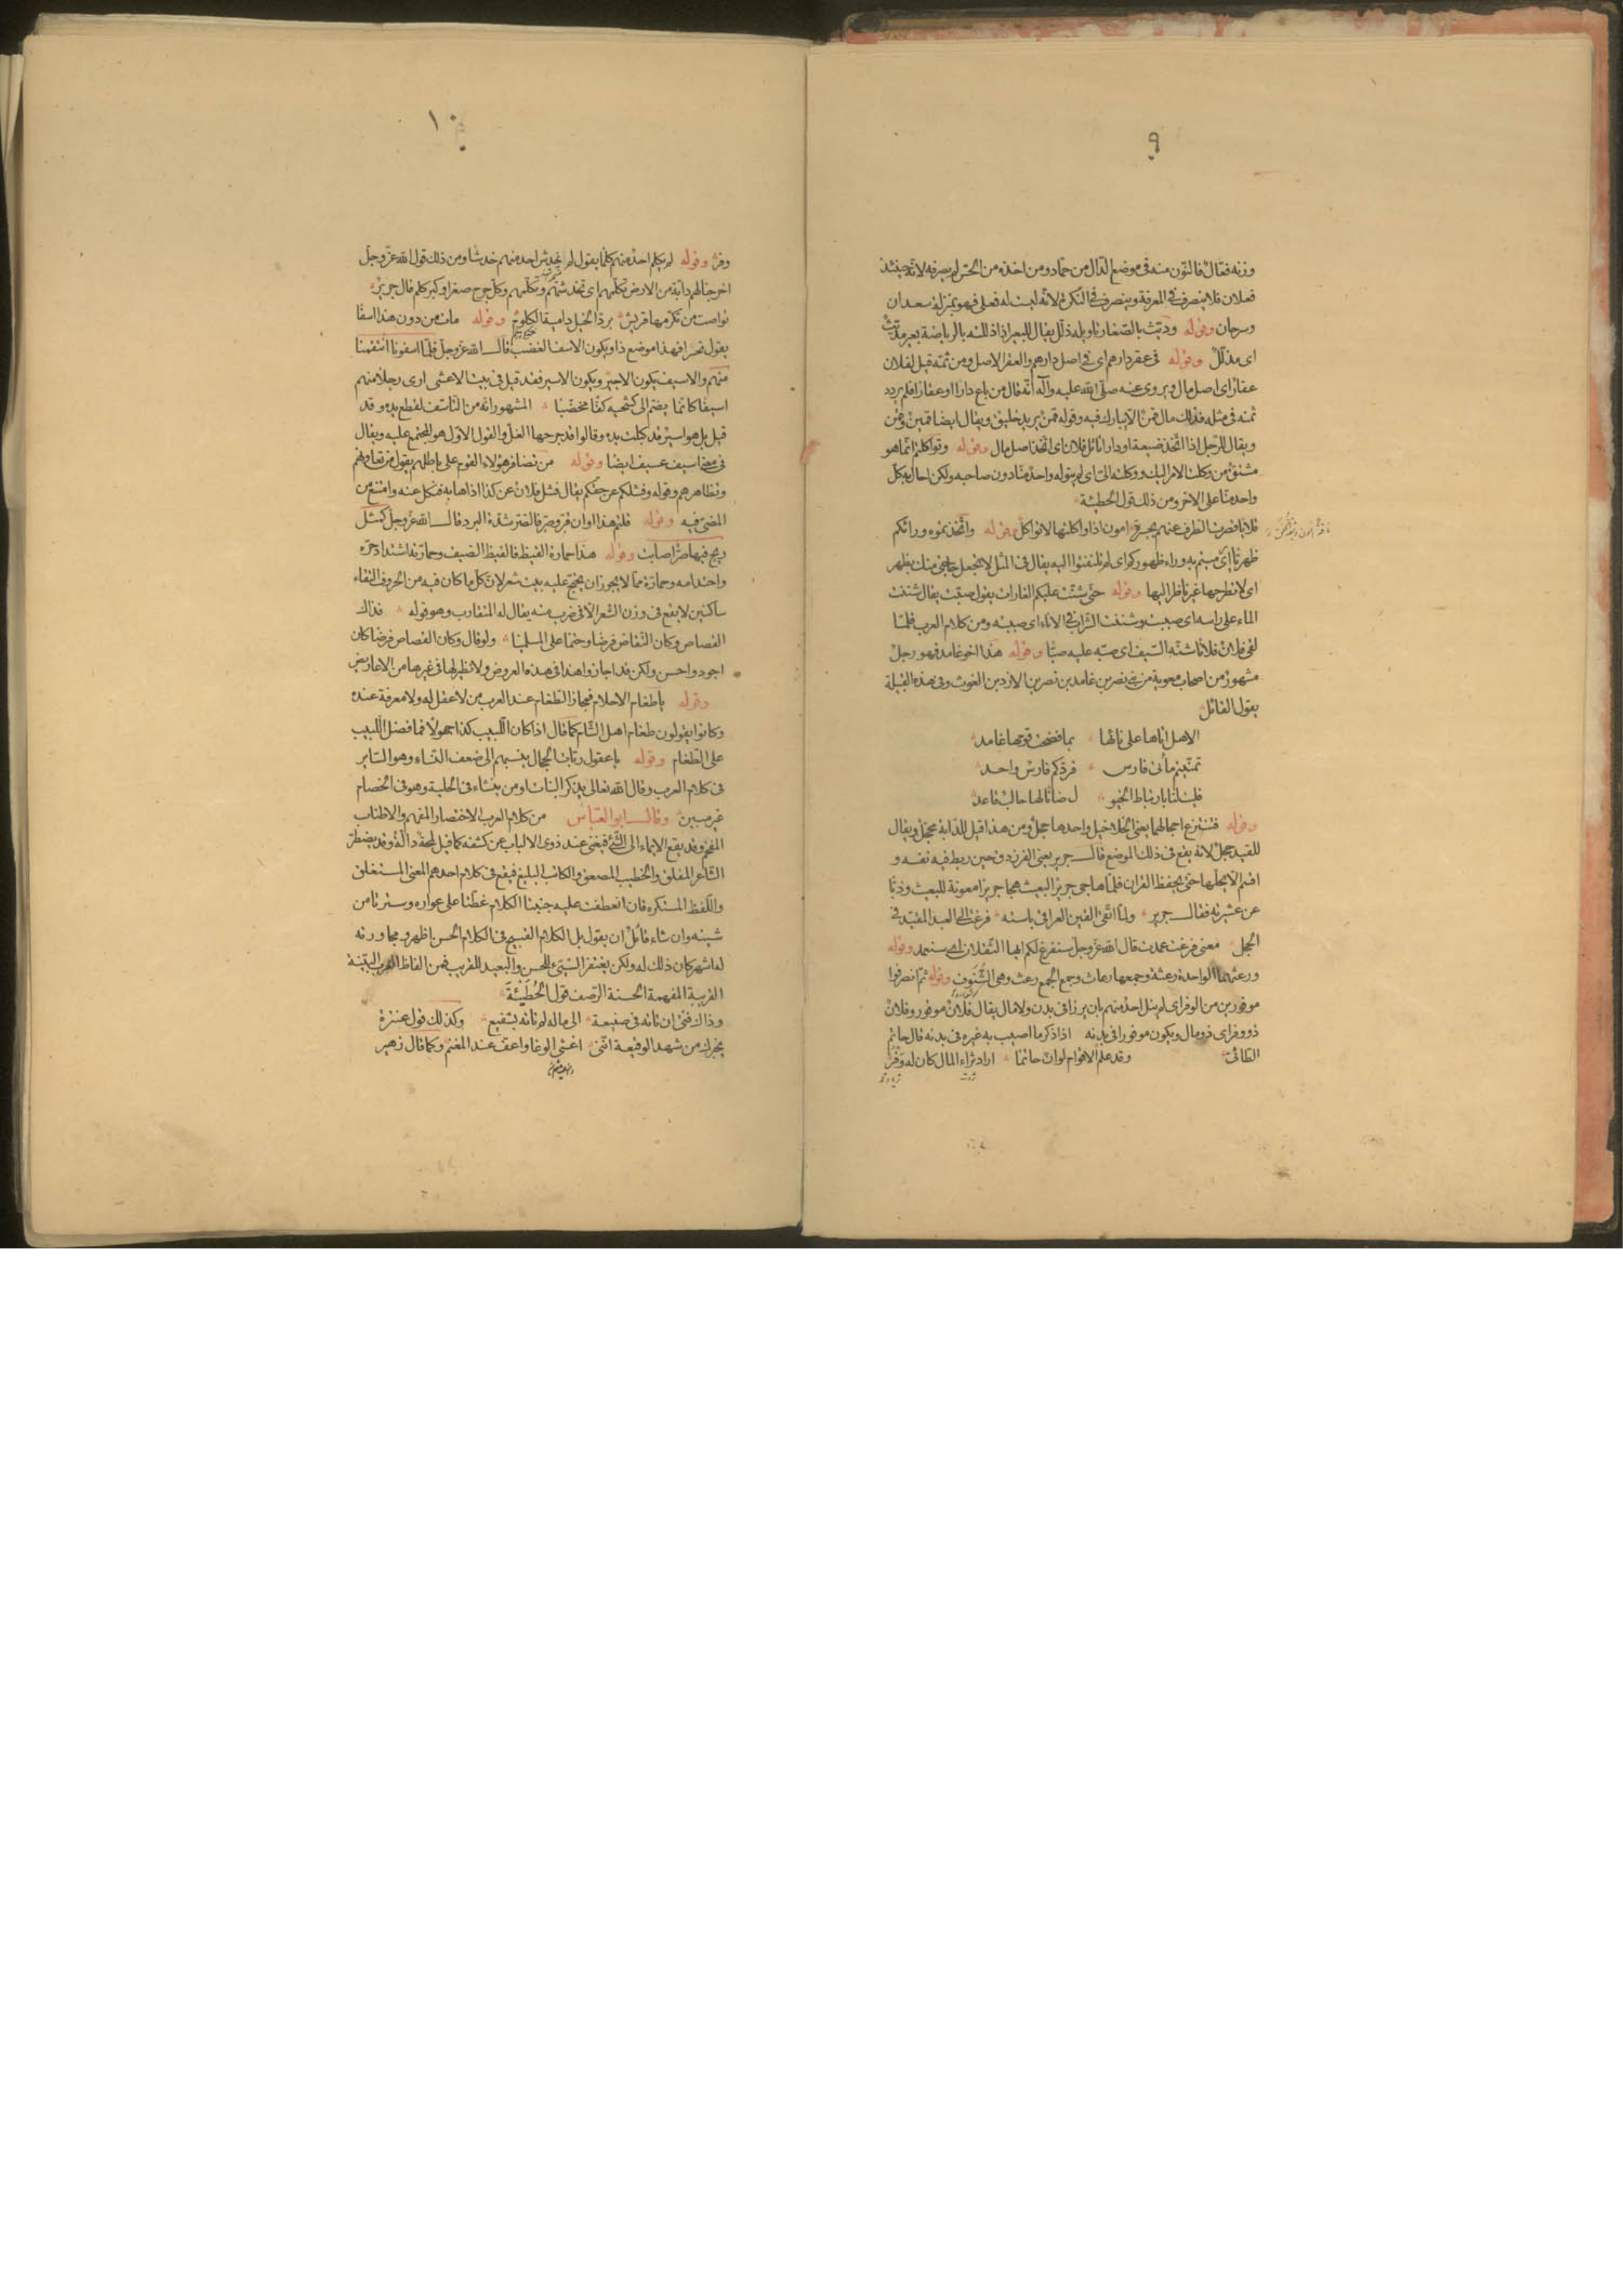 ٩
وزنه فقال فالنون منه فى موضع الدال من حماد ومن اخذه من الحس لم يصرفه لانه حينئذ
فعلان فلا ينصرف فى المعرفة وينصرف فى النكرة لانه ليست له فعلى فهو بمنزلة سعدان
وسرحان وقوله وديّث بالصغار تاويله ذلّل يقال للبعير اذا ذللته بالرياضة بعير مديّث
اى مذلّل وقوله فى عقر دارهم اى فى اصل دارهم والعقر الاصل ومن ثمّه قيل لفلان
عقار اى اصل مال ويروى عنه صلى الله عليه وآله انه قال من باع دارا او عقارا فلم يردد
ثمنه فى مثله فذلك مال قمن الا يبارك فيه وقوله قمن يريد خليق ويقال ايضا قمين وقمن
ويقال للرجل اذا اتخذ ضيعة او دارا تاثل فلان اى اتخذ اصل مال وقوله وتواكلتم انما هو
مشتق من وكلت الامر اليك ووكلته الىّ اى لم يتوله واحد منا دون صاحبه ولكن احال به كل
واحد منا على الاخر ومن ذلك قول الحطيئة
فلايا قصرت الطرف عنهم بحرة امون اذا واكلتها لا تواكل وقوله واتخذتموه ورائكم
ظهريّا اى رميتم به وراء ظهوركم اى لم تلتفتوا اليه يقال فى المثل لا تجعل حاجتى منك بظهر
اى لا تطرحها غير ناظر اليها وقوله حتى شنّت عليكم الغارات يقول صبّت يقال شننت
الماء على راسه اى صببته وشننت الشراب فى الاناء اى صببته ومن كلام العرب فلمّا
لقى فلان فلانا شنّه السيف اى صبّه عليه صبّا وقوله هذا اخو غامد فهو رجل
مشهور من اصحاب معوية من بنى نصر بن غامد بن نصر بن الازد بن الغوث وفى هذه القبيلة
يقول القائل
الا هل اتاها على نائها بما فضحت قومها غامد
تمنيتم مأتى فارس فردّكم فارس واحد
فليت لنا بارتباط الخيو ل ضانا لها حالب قاعد
وقوله فتنتزع احجالهما يعنى الخلاخيل واحدها حجل ومن هذا قيل للدابة محجل ويقال
للقيد حجل لانه يقع فى ذلك الموضع قال جرير يعنى الفرزدق حين ربط فيه نفسه و
اقسم الا يحلها حتى يحفظ القران فلما هاجى جرير البعيث هجا جريرا معونة للبعيث وذبّا
عن عشيرته فقال جرير ولما اتّقى القين العراقى باسته فرغت الى العبد المقيّد فى
الحجل معنى فرغت عمدت قال الله عز وجل سنفرغ لكم ايها الثقلان اى سنعمد وقوله
ورعثهما الواحدة رعثة وجمعها رعاث وجمع الجمع رعث وهى الشنوف وقوله ثم انصرفوا
موفورين من الوفر اى لم ينل احد منهم بان يرزا فى بدن ولا مال يقال فلان موفور وفلان
ذو وفر اى ذو مال ويكون موفورا فى بدنه اذا ذكر ما اصيب به غيره فى بدنه قال حاتم
الطائى وقد علم الاقوام لو ان حاتما اراد ثراء المال كان له وفر
١٠
وفر وقوله لم يكلم احد منهم كلما يقول لم يخدش احد منهم خدشا ومن ذلك قول الله عز وجل
اخرجنا لهم دابة من الارض تكلمهم اى تخدشهم وتكلمهم وكل جرح صغر او كبر كلم قال جرير
تواصت من تكرمها قريش برد الخيل دامية الكلوم وقوله مات من دون هذا اسفا
يقول تحسرا فهذا موضع ذا ويكون الاسف الغضب قال الله عز وجل فلما اسفونا انتقمنا
منهم والاسيف يكون الاجير ويكون الاسير فقد قيل فى بيت الاعشى ارى رجلا منهم
اسيفا كانما يضم الى كشحيه كفا مخضبا المشهور انه من التاسف لقطع يده وقد
قيل بل هو اسير قد كبلت يده وقالوا قد جرحها الغل والقول الاول هو المجتمع عليه ويقال
فى معنى اسيف عسيف ايضا وقوله من تضافر هؤلاء القوم على باطلهم يقول من تعاونهم
وتظاهرهم وقوله وفشلكم عن حقكم يقال فشل فلان عن كذا اذا هابه فنكل عنه وامتنع من
المضى فيه وقوله قلتم هذا اوان قر وصر فالصر شدة البرد قال الله عز وجل كمثل
ريح فيها صر اصابت وقوله هذا حمارة القيظ فالقيظ الصيف وحمارته اشتداد حره
واحتدامه وحمارة مما لا يجوز ان يحتج عليه ببيت شعر لان كل ما كان فيه من الحروف التقاء
ساكنين لا يقع فى وزن الشعر الا فى ضرب منه يقال له المتقارب وهو قوله فذاك
القصاص وكان التقاص فرضا وحتما على المسلمينا ولو قال وكان القصاص فرضا كان
اجود واحسن ولكن قد اجازوا هذا فى هذه العروض ولا نظير لها فى غيرها من الاعاريض
وقوله يا طغام الاحلام فمجاز الطغام عند العرب من لا عقل له ولا معرفة عنده
وكانوا يقولون طغام اهل الشام كما قال اذا كان اللبيب كذا جهولا فما فضل اللبيب
على الطغام وقوله يا عقول ربات الحجال ينسبهم الى ضعف النساء وهو السائر
فى كلام العرب وقال الله تعالى يذكر البنات اومن ينشاء فى الحلية وهو فى الخصام
غير مبين وقال ابو العباس من كلام العرب الاختصار المفهم والاطناب
المفخم وقد يقع الايماء الى الشئ فيغنى عند ذوى الالباب عن كشفه كما قيل لمحة دالة وقد يضطر
الشاعر المفلق والخطيب المصقع والكاتب البليغ فيقع فى كلام احدهم المعنى المستغلق
واللفظ المستكره فان انعطفت عليه جنبتا الكلام غطتا على عواره وسترتا من
شينه وان شاء قائل ان يقول بل الكلام القبيح فى الكلام الحسن اظهر ومجاورته
له اشهر كان ذلك له ولكن يغتفر السيئ للحسن والبعيد للقريب فمن الفاظ العرب البينة
القريبة المفهمة الحسنة الرصف قول الحطيئة
وذاك فتى ان تاته فى صنيعة الى ماله لم تاته بشفيع وكذلك قول عنترة
يخبرك من شهد الوقيعة اننى اغشى الوغا واعف عند المغنم وكما قال زهير